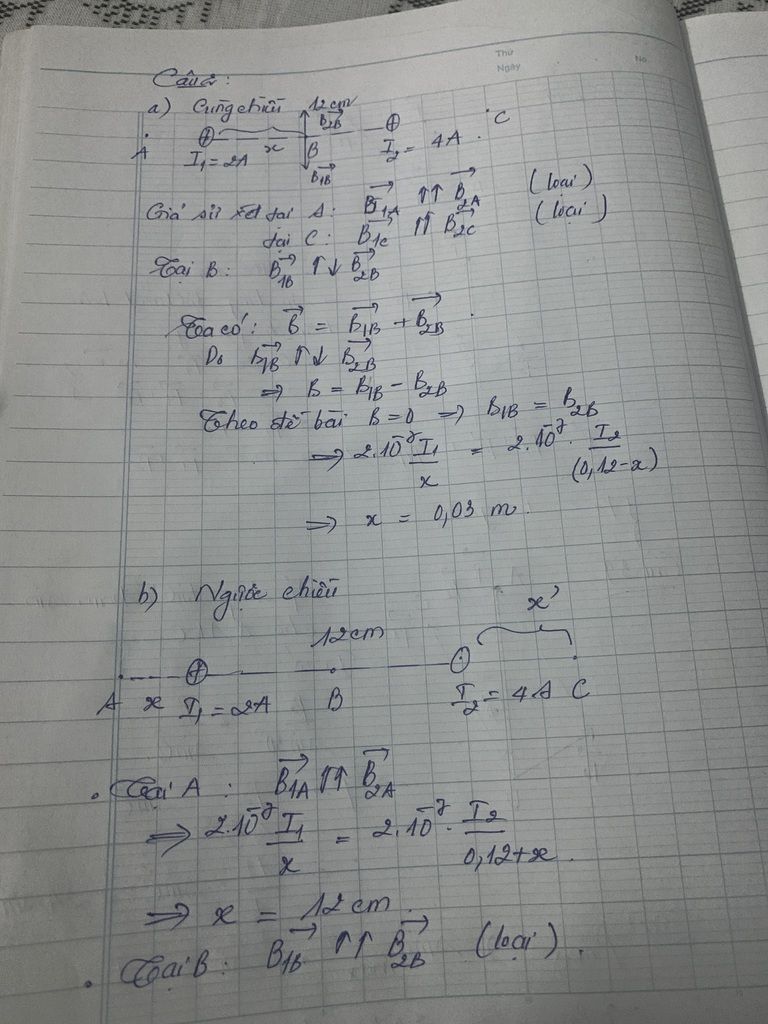 Thứ
Ngày No
Câu 2:
a) Cùng chiều 12cm
B₂B
A I₁ = 2A x B I₂ = 4A C
B₁B
Giả sử xét tại A: B₁A ↑↑ B₂A (loại)
tại C: B₁C ↑↑ B₂C (loại)
Tại B: B₁B ↑↓ B₂B
Ta có: B = B₁B + B₂B
Do B₁B ↑↓ B₂B
⇒ B = B₁B - B₂B
Theo đề bài B = 0 ⇒ B₁B = B₂B
⇒ 2.10⁻⁷ I₁/x = 2.10⁻⁷. I₂/(0,12-x)
⇒ x = 0,03 m.
b) Ngược chiều
12cm x'
A x I₁ = 2A B I₂ = 4A C
. Tại A: B₁A ↑↑ B₂A
⇒ 2.10⁻⁷ I₁/x = 2.10⁻⁷. I₂/0,12+x.
⇒ x = 12cm.
. Tại B: B₁B ↑↑ B₂B (loại).